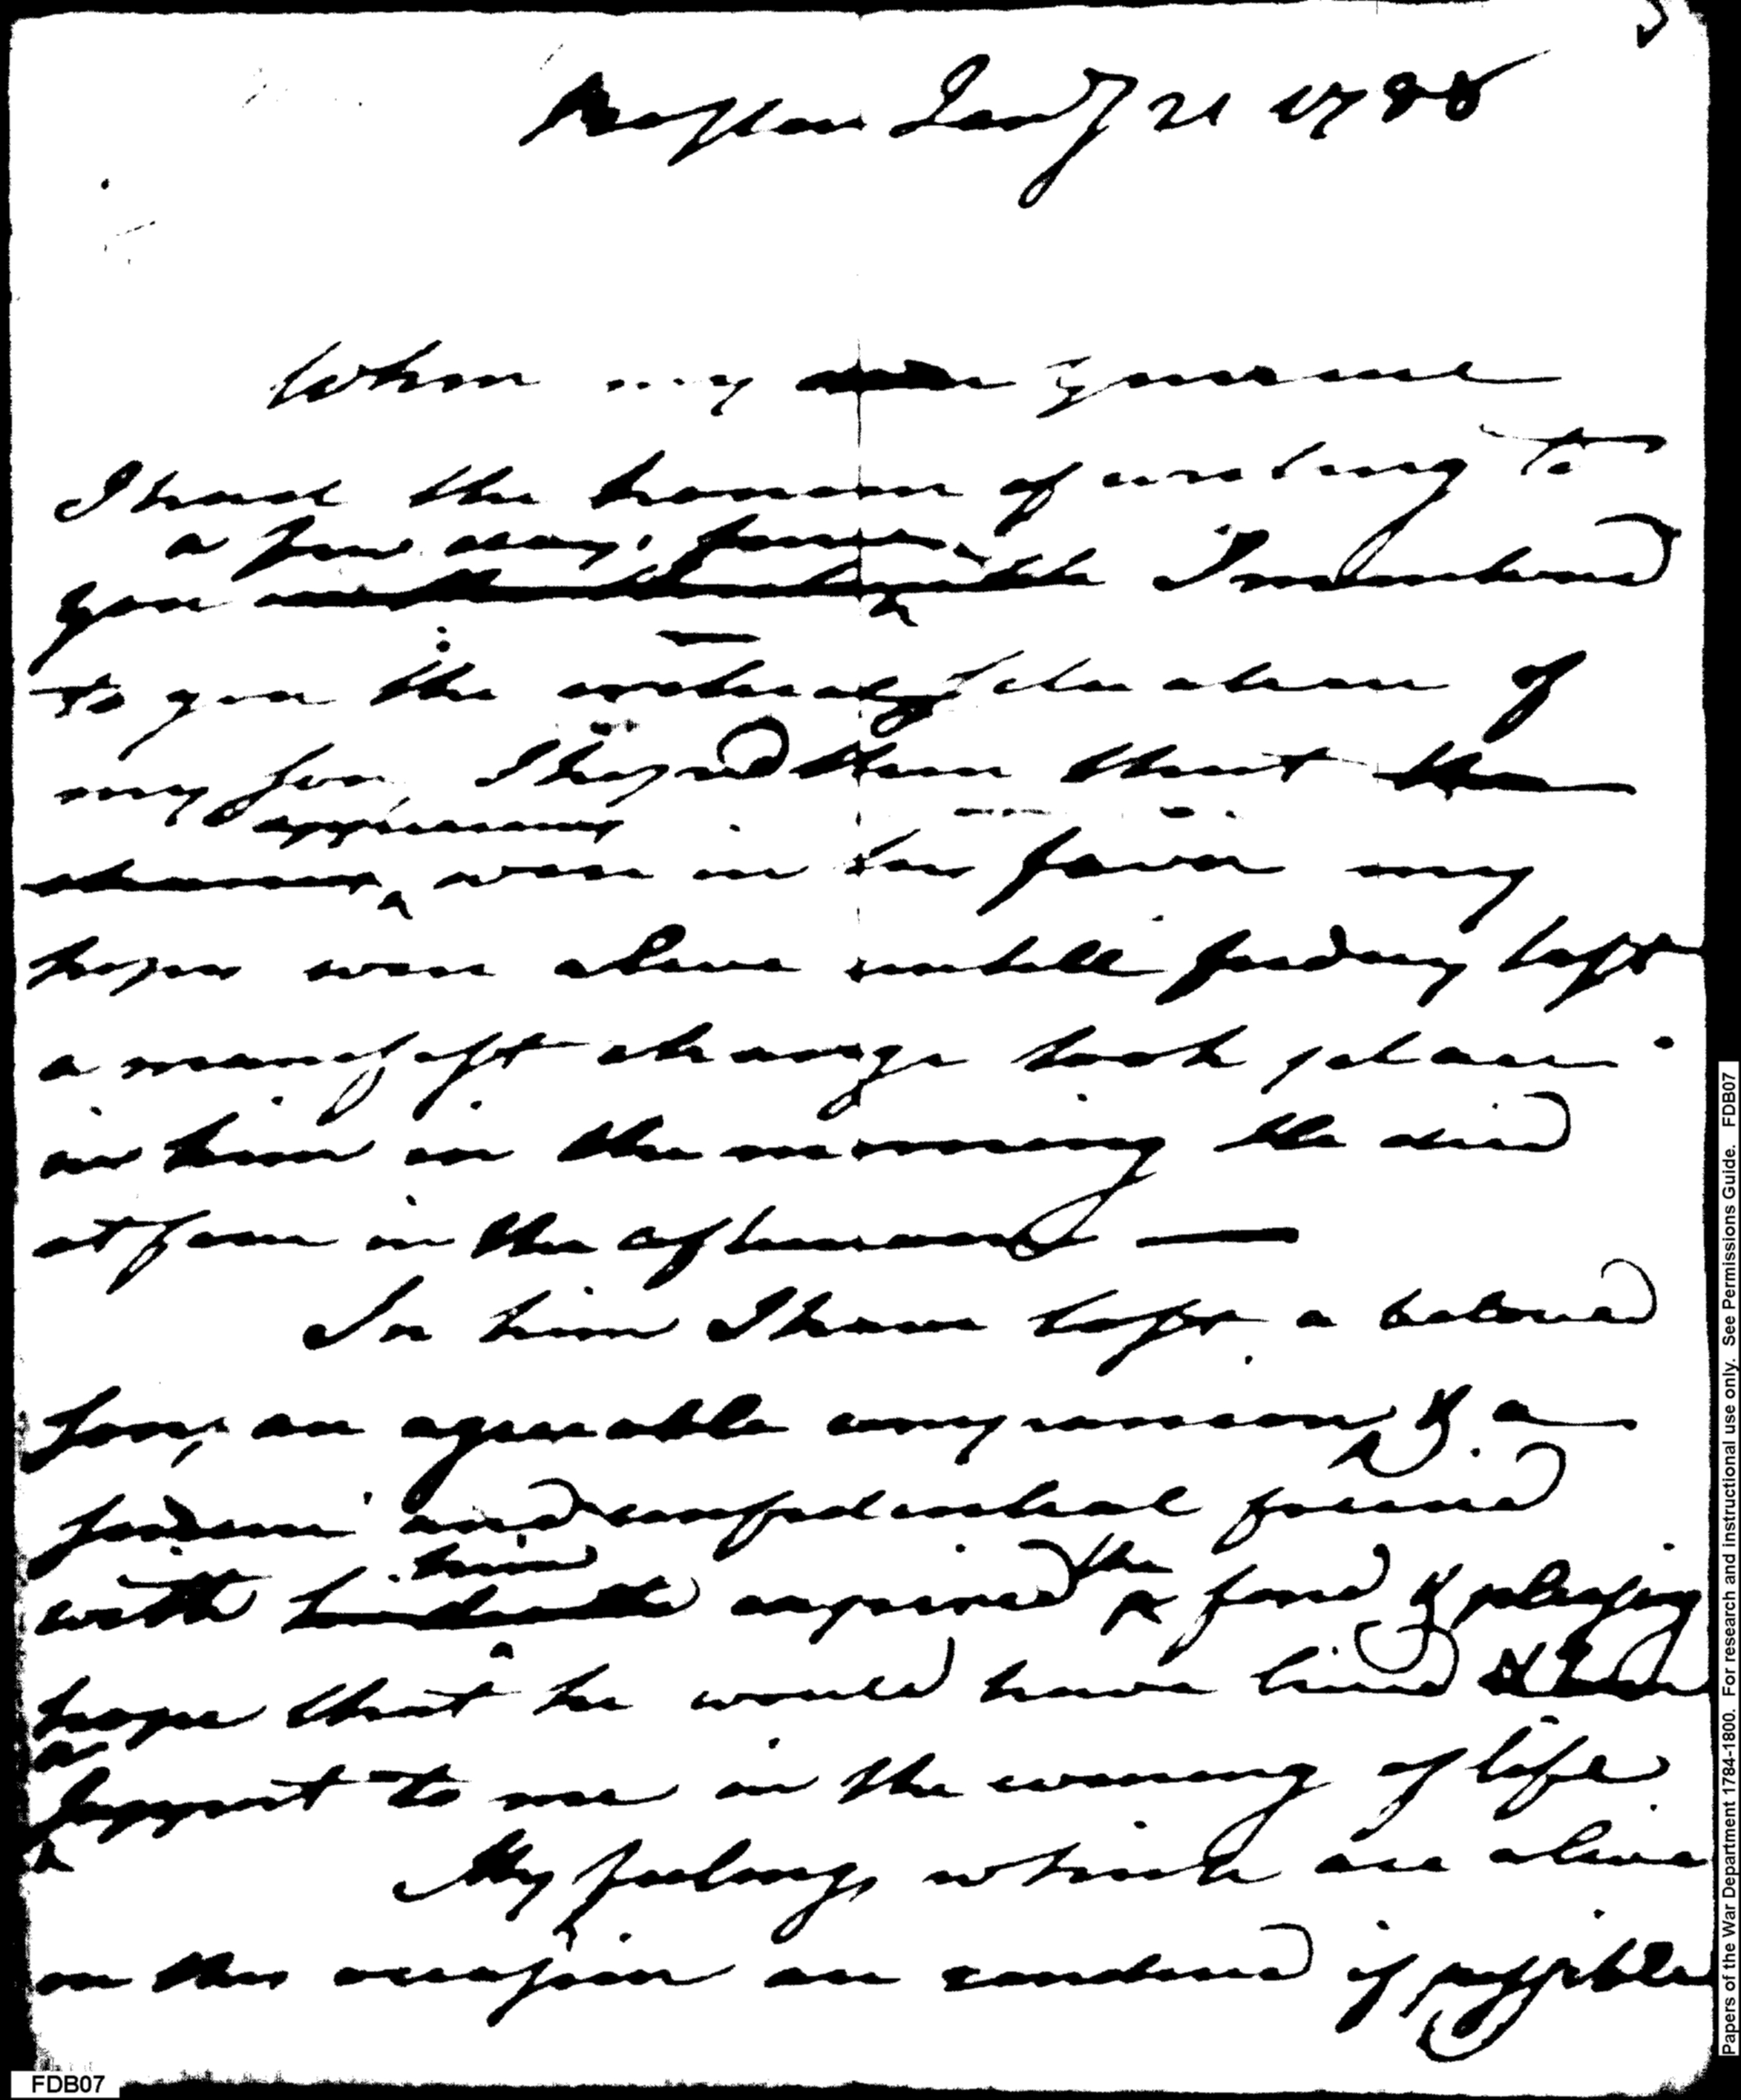 Boston Jany 21 1788
When my dear
I had the honour of writing to
a few days since
you I mentioned
to you the critical situation of
my son, I hoped then that the
appearances
chances were in his favor my
hopes were alive untill friday last
a manifest change took place
in him in the morning He died
at four in the afternoon —
In him I have lost a beloved
Son, an agreeable companion & a
firm and confidential friend
him the
with expired fond & pleasing
hope that he would have lived
a
support to me in the evening of life
My feelings which are alive
on this occasion are rendered if possible
Papers of the War Department 1784-1800. For research and instructional use only. See Permissions Guide. FDB07
FDB07